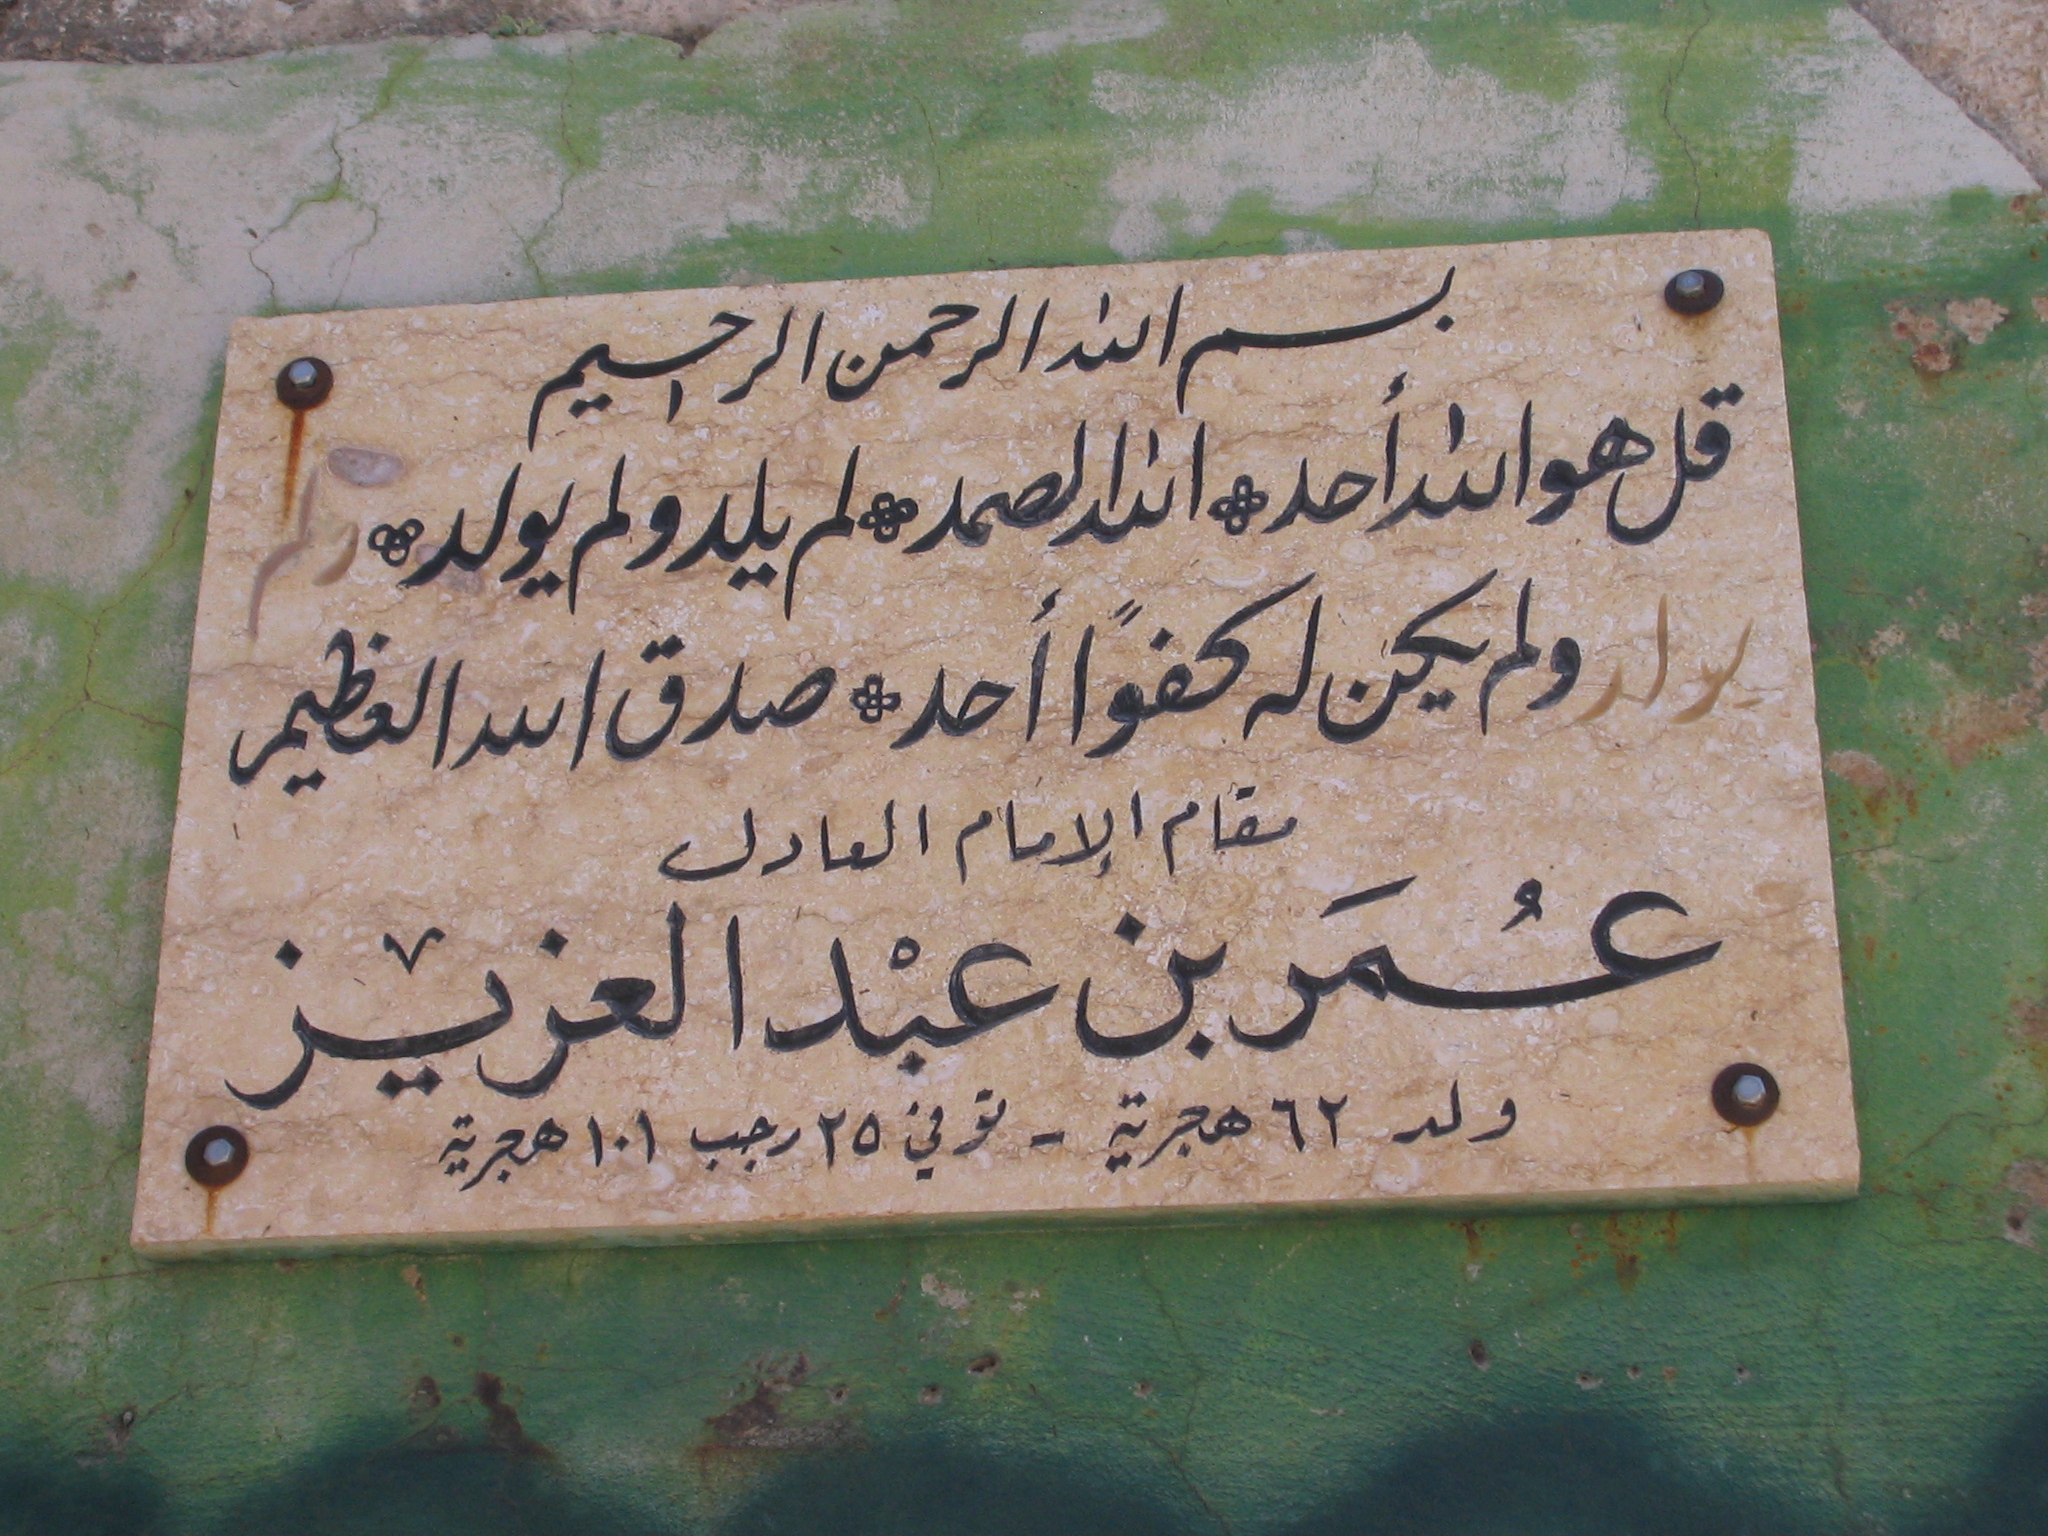 بسم الله الرحمن الرحيم
قل هو الله أحد الله الصمد لم يلد ولم يولد ولم
يولد ولم يكن له كفوًا أحد صدق الله العظيم
مقام الإمام العادل
عُمَر بن عبْد العزيز
ولد ٦٢ هجرية - توفي ٢٥ رجب ١٠١ هجرية